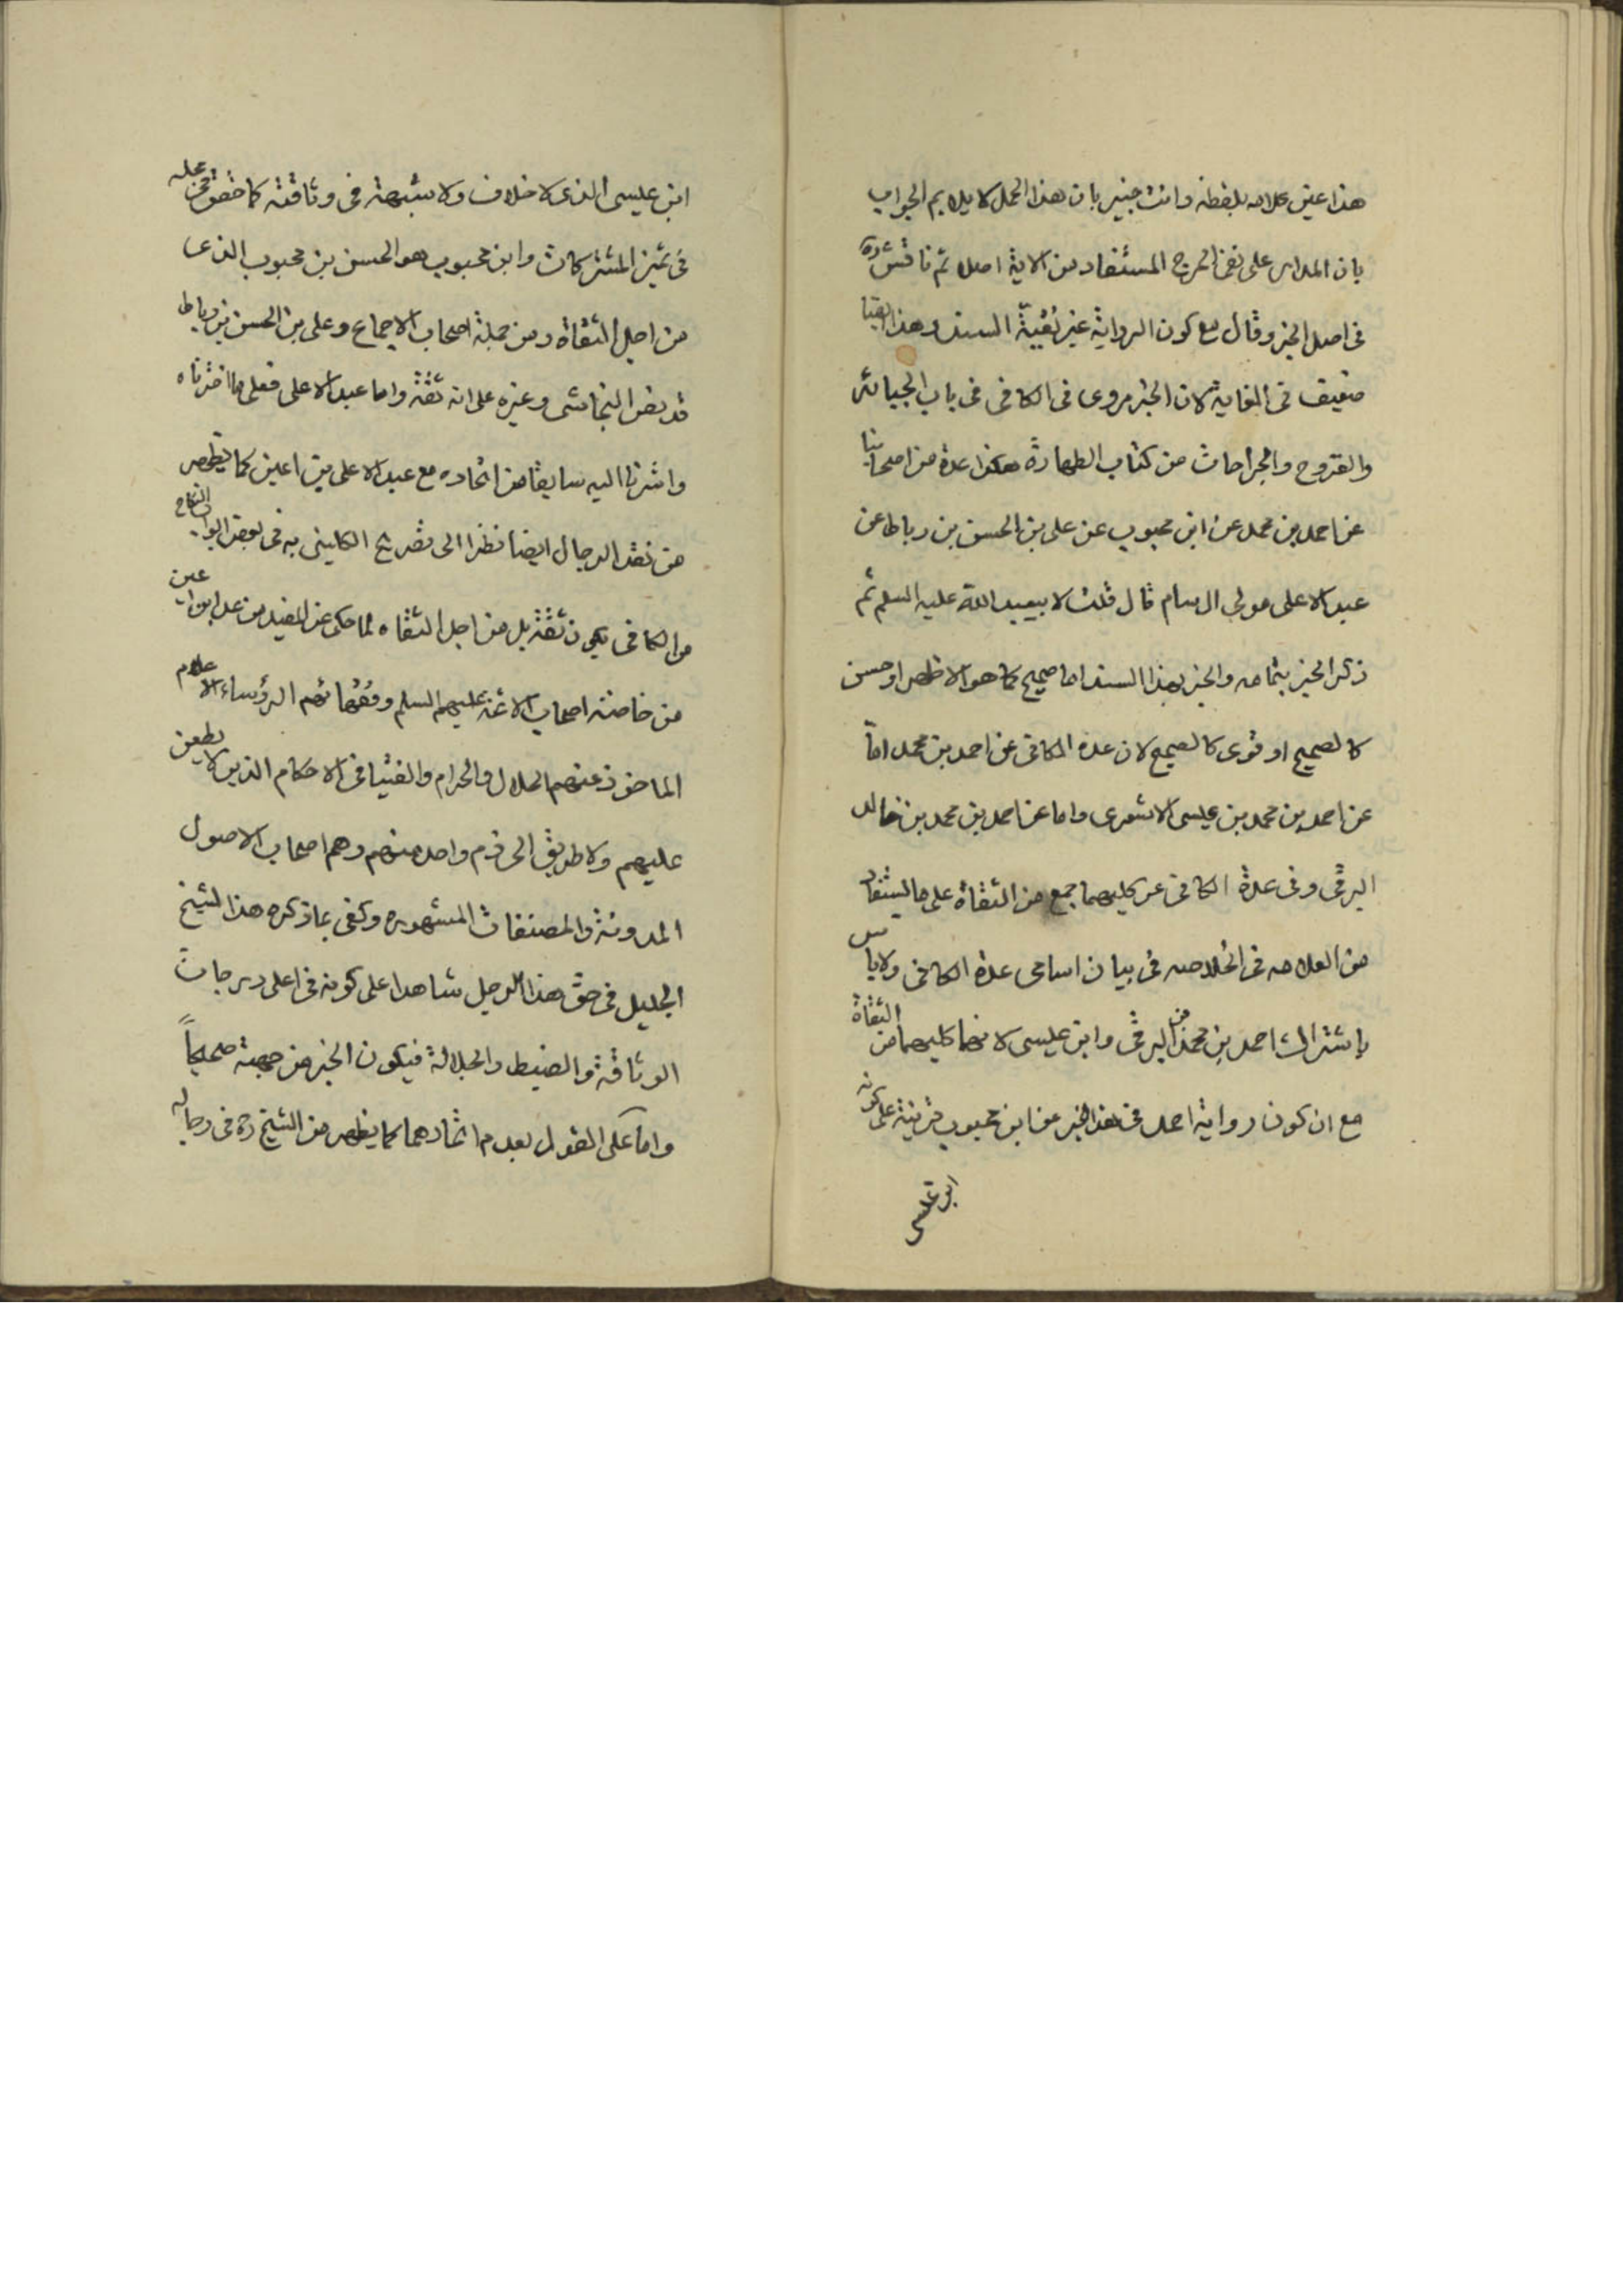 هذا عين كلامه بلفظه وانت خبير بان هذا الحمل لا يلايم الجواب
بان المدار على نفى الحرج المستفاد من الاية اصلا ثم ناقش ره
فى اصل الخبر وقال مع كون الرواية غير نقيّة السند وهذا ايضا
ضعيف فى الغاية لان الخبر مروى فى الكافى فى باب الجبائر
والقروح والجراحات من كتاب الطهارة هكذا عدة من اصحابنا
عن احمد بن محمد عن ابن محبوب عن على بن الحسن بن رباط عن
عبد الاعلى مولى ال سام قال قلت لابيعبد الله عليه السلم ثم
ذكر الخبر بتمامه والخبر بهذا السند اما صحيح كما هو الاظهر او حسن
كالصحيح او قوى كالصحيح لان عدة الكافى عن احمد بن محمد امّا
عن احمد بن محمد بن عيسى الاشعرى واما عن احمد بن محمد بن خالد
البرقى وفى عدة الكافى عن كليهما جمع من الثقاة على ما يستفاد
من العلامه فى الخلاصه فى بيان اسامى عدة الكافى ولا باس
باشتراك احمد بن محمد من البرقى وابن عيسى لانهما كليهما من الثقاة
مع ان كون رواية احمد فى هذا الخبر عن ابن محبوب قرينة على كونه
ابن عيسى
ابن عيسى الذى لا خلاف ولا شبهة فى وثاقته كما حقق فى محله
فى تميز المشتركات وابن محبوب هو الحسن بن محبوب الذى
من اجل الثقاة ومن جملة اصحاب الاجماع وعلى بن الحسن بن رباط
قد نص النجاشى وغيره على انه ثقة واما عبد الاعلى فعلى ما اخترناه
واشرنا اليه سابقا من اتحاده مع عبد الاعلى بن اعين كما يظهر
من نقد الرجال ايضا نظرا الى تصريح الكلينى به فى بعض ابواب النكاح
من الكافى يكون ثقة بل من اجل الثقاه لما حكى عن المفيد من عد ابن اعين
من خاصة اصحاب الائمة عليهم السلم وفقهائهم الرؤساء الاعلام
الماخوذ عنهم الحلال والحرام والفتيا فى الاحكام الذين لا يطعن
عليهم ولا طريق الى ذم واحد منهم وهم اصحاب الاصول
المدونة والمصنفات المشهوره وكفى بما ذكره هذا الشيخ
الجليل فى حق هذا الرجل شاهدا على كونه فى اعلى درجات
الوثاقة والضبط والجلالة فيكون الخبر من جهته صحيحاً
واما على القول بعدم اتحادهما كما يظهر من الشيخ ره فى رجاله